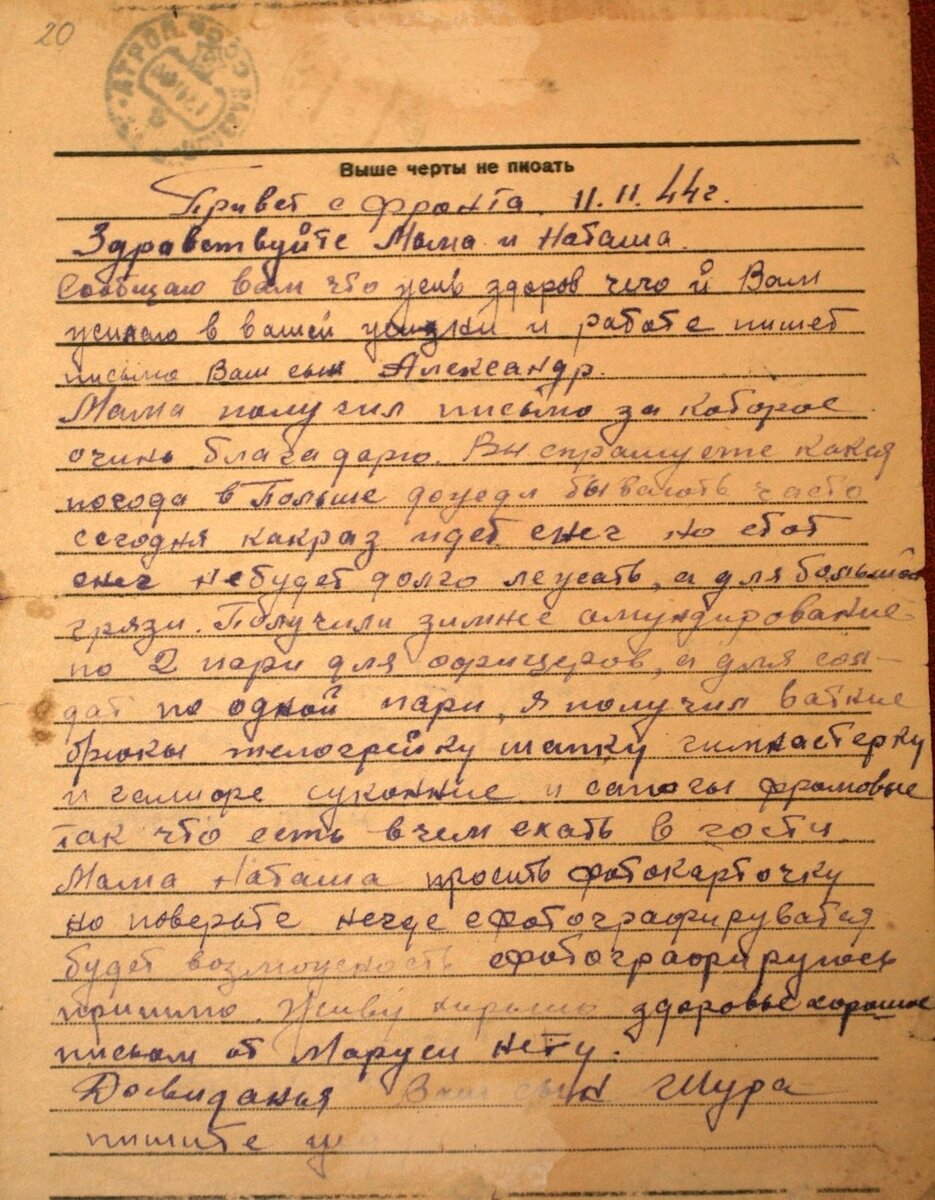 20
Выше черты не писать
Привет с фронта. 11.11.44г.
Здравствуйте Мама и Наташа.
Сообщаю вам что жив здоров чего и Вам
жилаю в вашей жизни и работе пишет
письмо Ваш сын Александр.
Мама получил письмо за которое
очинь благадарю. Вы спрашуете какая
погода в Польше дожди бывають часто
сегодня какраз идет снег но етот
снег небудет долго лежать, а для большой
грязи. Получили зимне амундирование
по 2 пари для офицеров, а для сол-
дат по одной пари, я получил ватние
брюкы телогрейку шапку гимнастерку
и галифе суконние и сапогы хромовые
так что есть вчем ехать в гости
Мама Наташа просить фотокарточку
но поверьте негде сфотографируватся
будет возможность сфотографируюсь
пришлю. Живу харашо здоровье хорошие
писем от Маруси нету.
Досвидания Ваш сын Шура
пишите